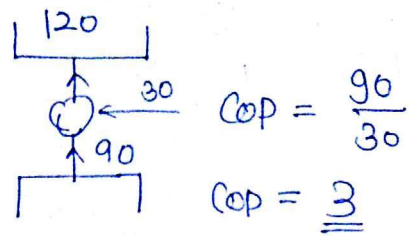 120
30
90
COP = 90/30
COP = 3